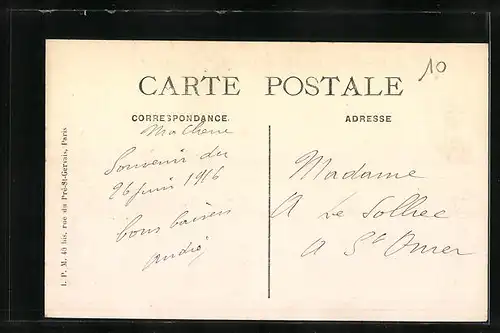 10
CARTE POSTALE
CORRESPONDANCE
Ma Cherie
Souvenir du
26 juin 1916
bons baisers
André
ADRESSE
Madame
A Le Solliec
A St Omer
I. P. M. 40 bis, rue du Pré-St-Gervais, Paris